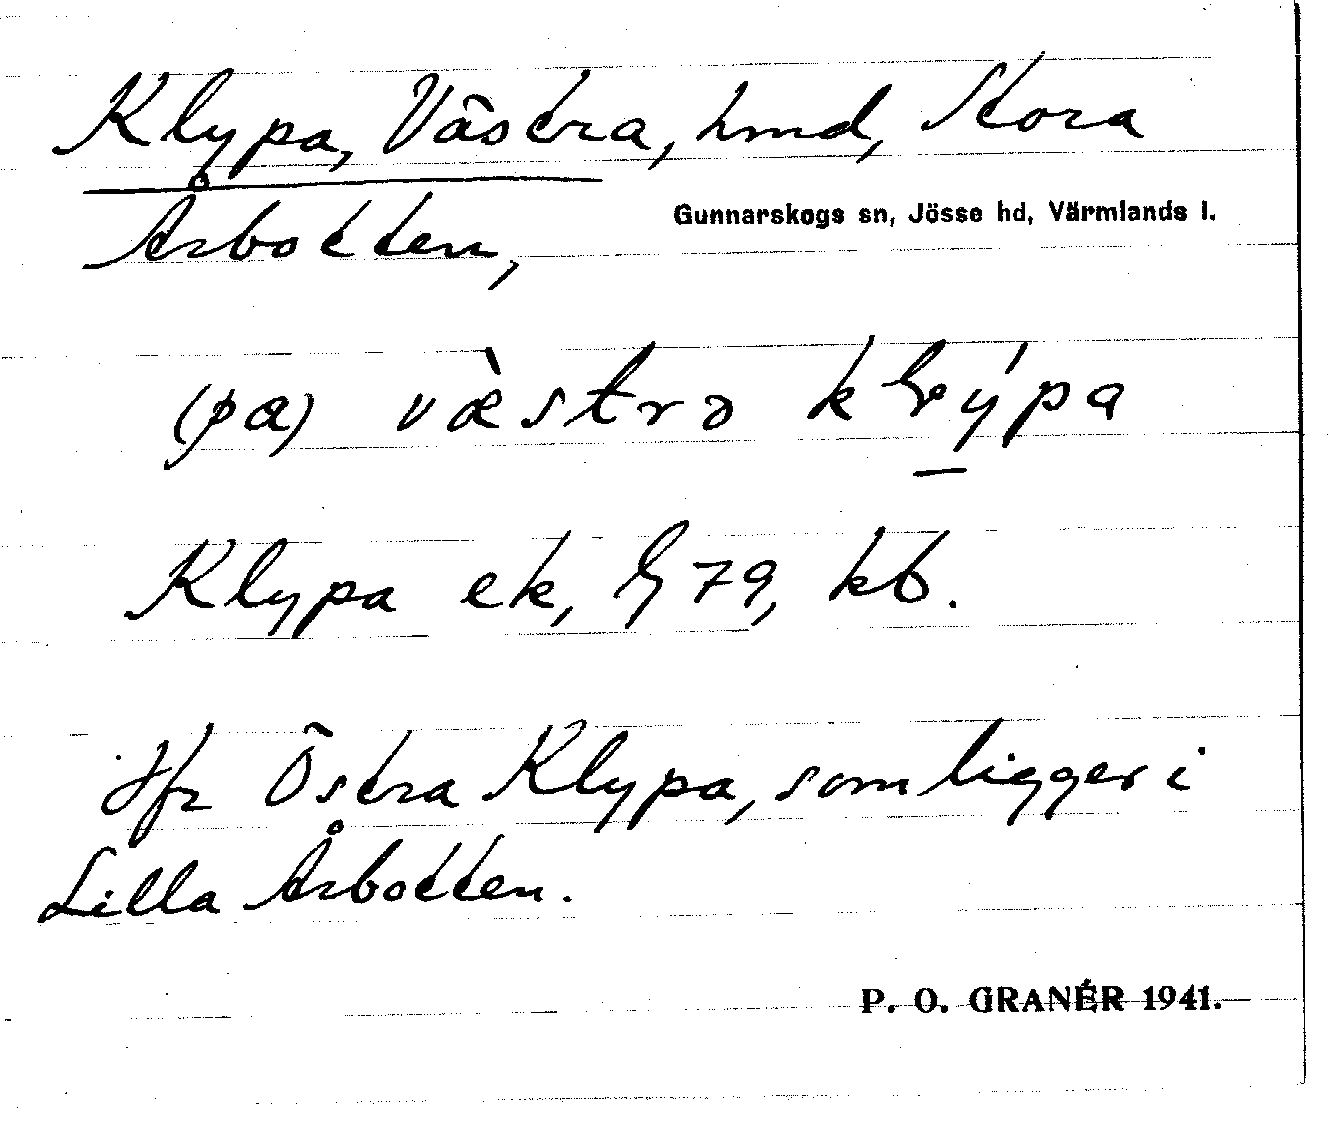 Klypa, Västra, hmd, Stora
Årbotten,
Gunnarskogs sn, Jösse hd, Värmlands l.
(pa) væ̀strə klýpa
Klypa ek, G 79, kb.
Jfr Östra Klypa, som ligger i
Lilla Årbotten.
P. O. GRANÉR 1941.